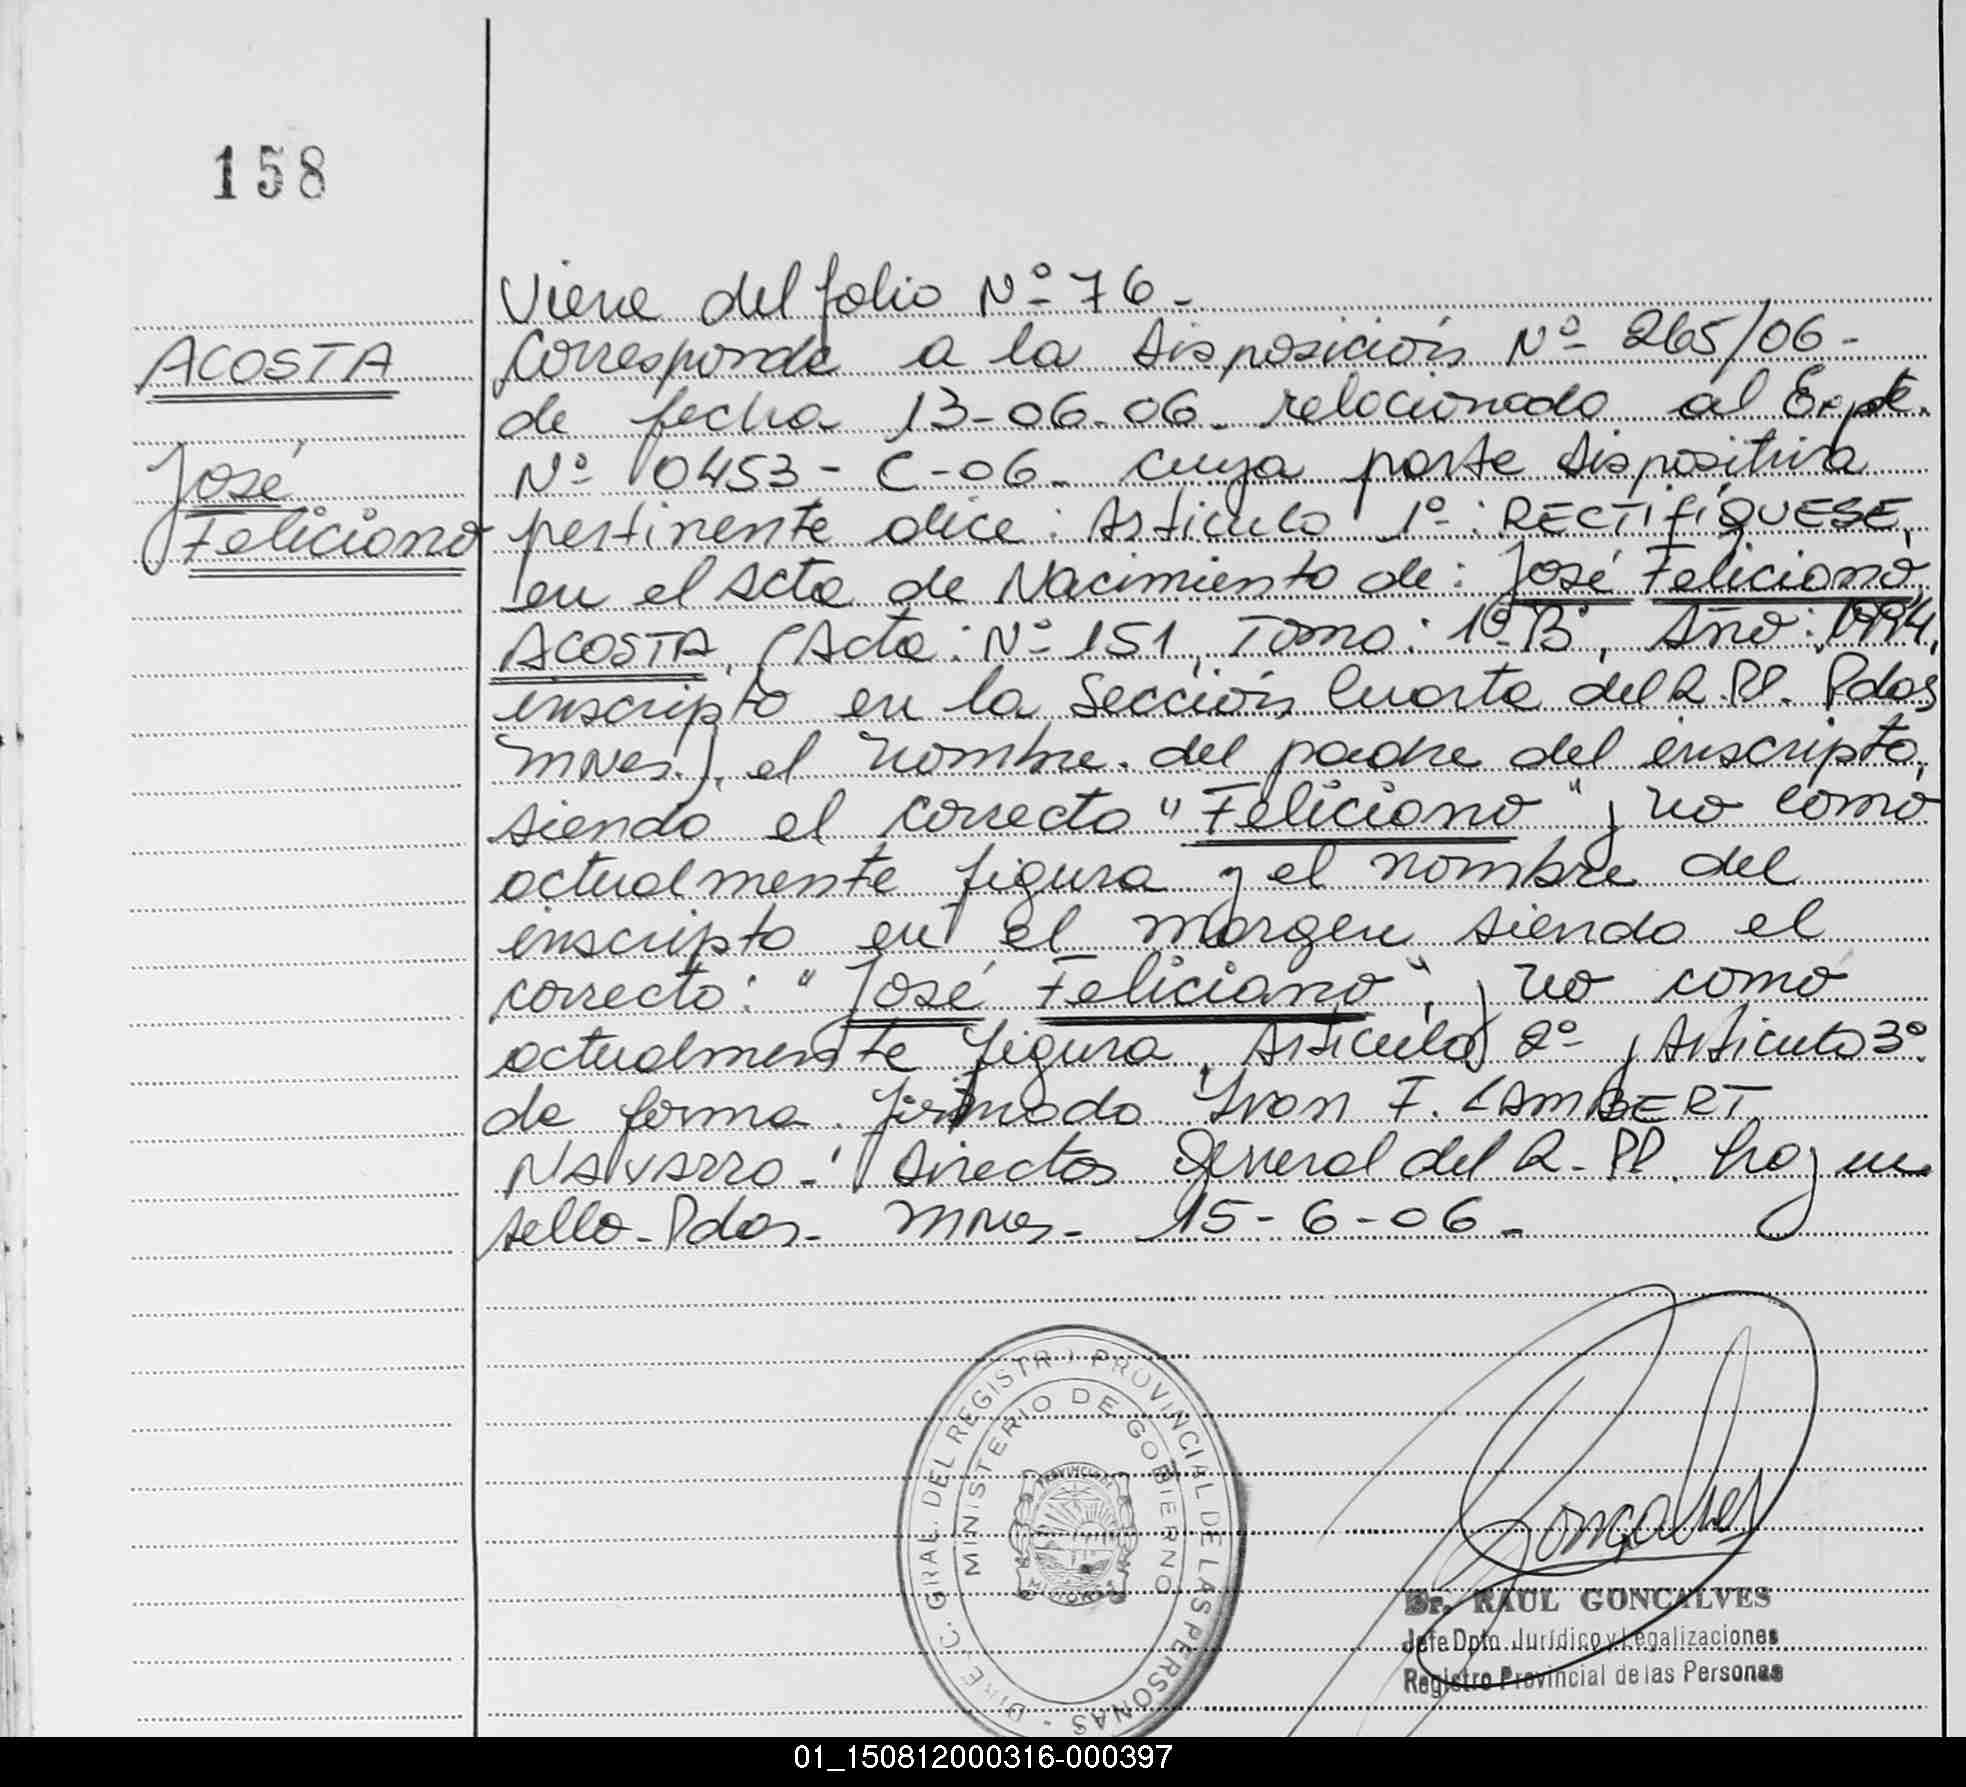 158
Viene del folio Nº 76.-
ACOSTA
Corresponde a la Disposición Nº 265/06-
de fecha 13-06-06- relacionado al Expte.
José
Nº 0453-C-06- cuya parte dispositiva
Feliciano
pertinente dice: Artículo 1º: RECTIFÍQUESE,
en el Acta de Nacimiento de: José Feliciano
ACOSTA, (Acta: Nº 151, Tomo: 1º B, Año: 1994,
inscripto en la Sección Cuarta del R.PP. Pdas
Mnes.), el nombre del padre del inscripto,
siendo el correcto "Feliciano" y no como
actualmente figura y el nombre del
inscripto en el margen siendo el
correcto: "José Feliciano", y no como
actualmente figura. Artículo 2º y Artículo 3º
de forma. firmado Ivan F. LAMBERT
NAVARRO-. Director General del R.PP. hay un
sello- Pdas- Mnes- 15-6-06-
DIREC. GRAL. DEL REGISTRO PROVINCIAL DE LAS PERSONAS -
MINISTERIO DE GOBIERNO
PROVINCIA DE
MISIONES
Goncalves
Dr. RAUL GONCALVES
Jefe Dpto. Jurídico y Legalizaciones
Registro Provincial de las Personas
01_150812000316-000397